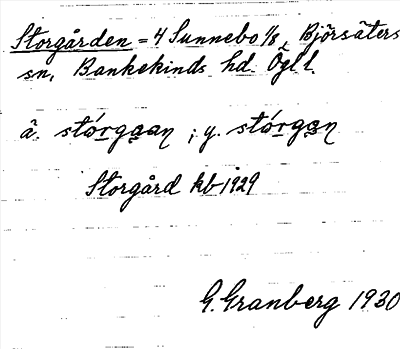 Storgården = 4 Sunnebo 1/8, Björsäters
sn, Bankekinds hd Ögl.
ä. stó̱rga̱an ; y. stó̱rgan
Storgård kb 1929
G. Granberg 1930